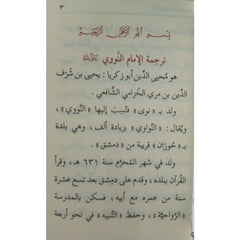 ٣
بِسْمِ اللهِ الرَّحْمٰنِ الرَّحِيمِ
ترجمة الإمام النَّووي رَحِمَهُ اللهُ
هو مُحيي الدِّين أبو زكريا: يحيى بن شَرَف
الدِّين بن مري الحِزامي الشَّافعي.
ولد بـ «نوى» فنُسِبَ إليها «النَّووي»،
ويُقال: «النَّواوي» بزيادة ألف، وهي بلدة
بـ «حُوران» قريبة من «دمشق».
ولد في شهر المُحرَّم سنة ٦٣١ هـ، وقرأ
القُرآن ببلده، وقدم على دمشق بعد تسع عشرة
سنة من عمره مع أبيه، فسكن بالمدرسة
«الرَّواحيَّة»، وحفظ «التَّنبيه» في نحو أربعة